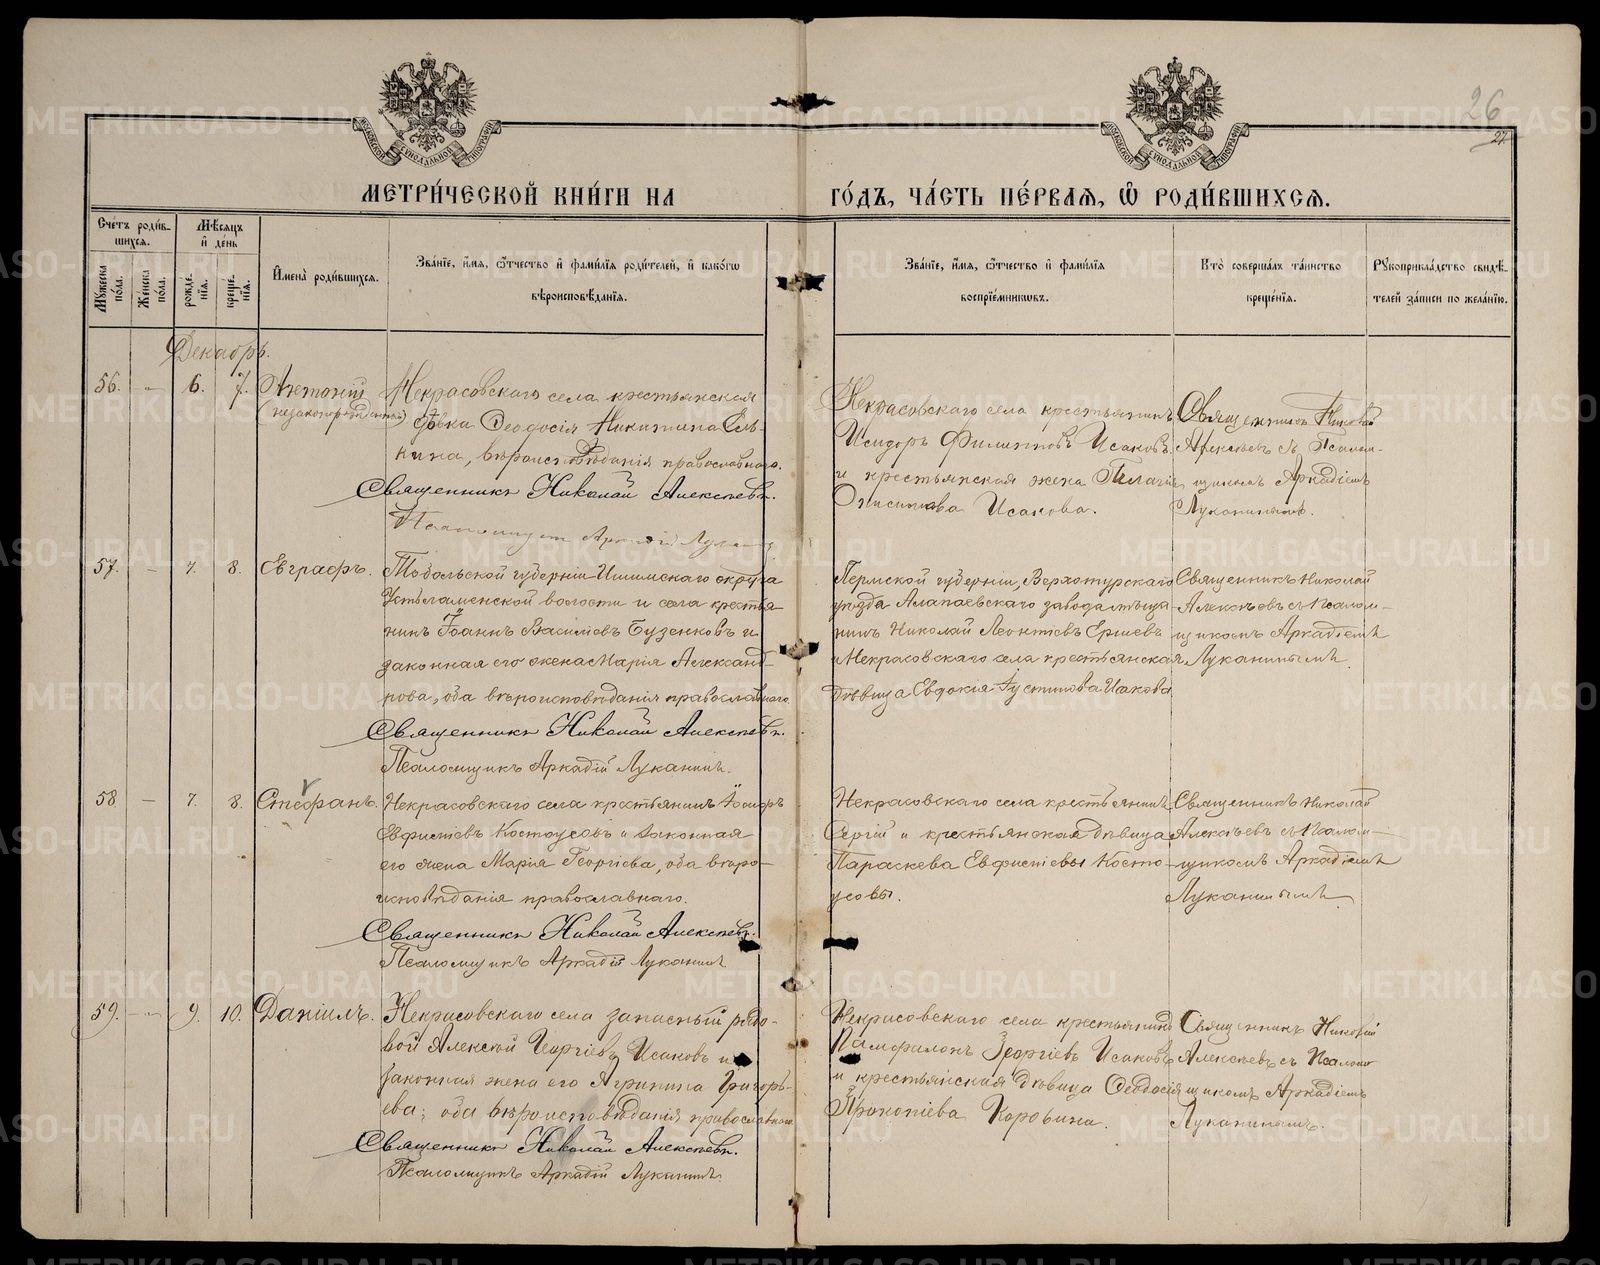 26
27
МЕТРИ́ЧЕСКОЙ КНИ́ГИ НА ГО́ДЪ, ЧА́СТЬ ПЕ́РВАѦ, Ѿ РОДИ́ВШИХСѦ.
Сче́тъ роди́в-
шихсѧ.
Мѣ́сѧцъ
и҆ де́нь
Мꙋ́жеска
по́ла.
Же́нска
по́ла.
рожде́-
нїѧ.
креще́-
нїѧ.
И҆мена̀ роди́вшихсѧ.
Зва́нїе, и҆́мѧ, ѻ҆́тчество и҆ фами́лїѧ роди́телей, и҆ како́гѡ
вѣроисповѣ́данїѧ.
Зва́нїе, и҆́мѧ, ѻ҆́тчество и҆ фами́лїѧ
воспрїе́мникѡвъ.
Кто̀ соверша́лъ та́инство
креще́нїѧ.
Рꙋкоприкла́дство свидѣ́-
телей за́писи по жела́нїю.
Декабрь.
56. — 6. 7. Антоній
(незаконнорожденный)
Некрасовскаго села крестьянская
дѣвка Ѳеодосія Никитина Ель-
кина, вѣроисповѣданія православнаго.
Священникъ Николай Алексѣевъ.
Псаломщикъ Аркадій Луканинъ
Некрасовскаго села крестьянинъ
Исидоръ Филипповъ Исаковъ
и крестьянская жена Пелагія
Онисимова Исакова.
Священникъ Николай
Алексѣевъ съ Псалом-
щикомъ Аркадіемъ
Луканинымъ.
57. — 7. 8. Евграфъ.
Тобольской губерніи Ишимскаго округа
Устьламенской волости и села крестья-
нинъ Іоаннъ Василіевъ Бузенковъ и
законная его жена Марія Александ-
рова, оба вѣроисповѣданія православнаго
Священникъ Николай Алексѣевъ.
Псаломщикъ Аркадій Луканинъ.
Пермской губерніи, Верхотурскаго
уѣзда Алапаевскаго завода мѣща-
нинъ Николай Леонтіевъ Ершевъ
и Некрасовскаго села крестьянская
дѣвица Евдокія Іустинова Исакова
Священникъ Николай
Алексѣевъ съ Псалом-
щикомъ Аркадіемъ
Луканинымъ.
58 — 7. 8. Стефанъ.
Некрасовскаго села крестьянинъ
Евфистіевъ Костоусовъ и законная
его жена Марія Георгіева, оба вѣро-
исповѣданія православнаго.
Священникъ Николай Алексѣевъ.
Псаломщикъ Аркадій Луканинъ
Некрасовскаго села крестьянинъ
Сергій и крестьянская дѣвица
Параскева Евфистіевы Косто-
усовы.
Священникъ Николай
Алексѣевъ съ Псалом-
щикомъ Аркадіемъ
Луканинымъ
59. — 9. 10. Даніилъ.
Некрасовскаго села запасный рядо-
вой Алексѣй Георгіевъ Исаковъ и
законная жена его Агрипина Григорь-
ева, оба вѣроисповѣданія православнаго
Священникъ Николай Алексѣевъ.
Псаломщикъ Аркадій Луканинъ.
Некрасовскаго села крестьянинъ
Памфилонъ Георгіевъ Исаковъ
и крестьянская дѣвица Ѳеодосія
Прокопіева Коровина.
Священникъ Николай
Алексѣевъ съ Псалом-
щикомъ Аркадіемъ
Луканинымъ.
METRIKI.GASO-URAL.RU